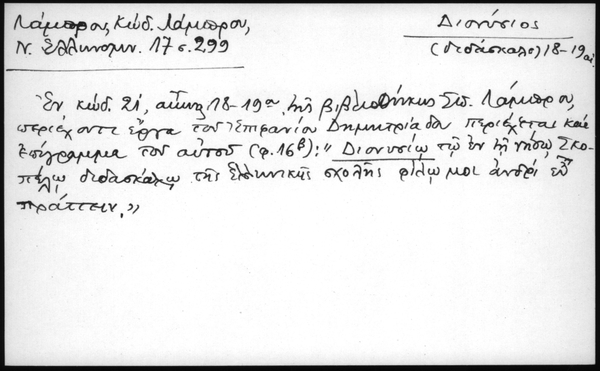 Λάμπρος, Κώδ. Λάμπρου,
Ν. Ἑλληνομν. 17 σ. 299
Διονύσιος
(διδάσκαλος) 18-19 αἰ.
Ἐν κώδ. 21, αἰῶνος 18-19ου, τῆς βιβλιοθήκης Σπ. Λάμπρου,
περιέχοντι ἔργα τοῦ Ἐπιφανίου Δημητριάδου περιέχεται καὶ
ἐπίγραμμα τοῦ αὐτοῦ (φ. 16β): "Διονυσίῳ τῷ ἐν τῇ νήσῳ Σκο-
πέλῳ διδασκάλῳ τῆς ἑλληνικῆς σχολῆς φίλῳ μοι ἀνδρί εὖ
πράττειν."